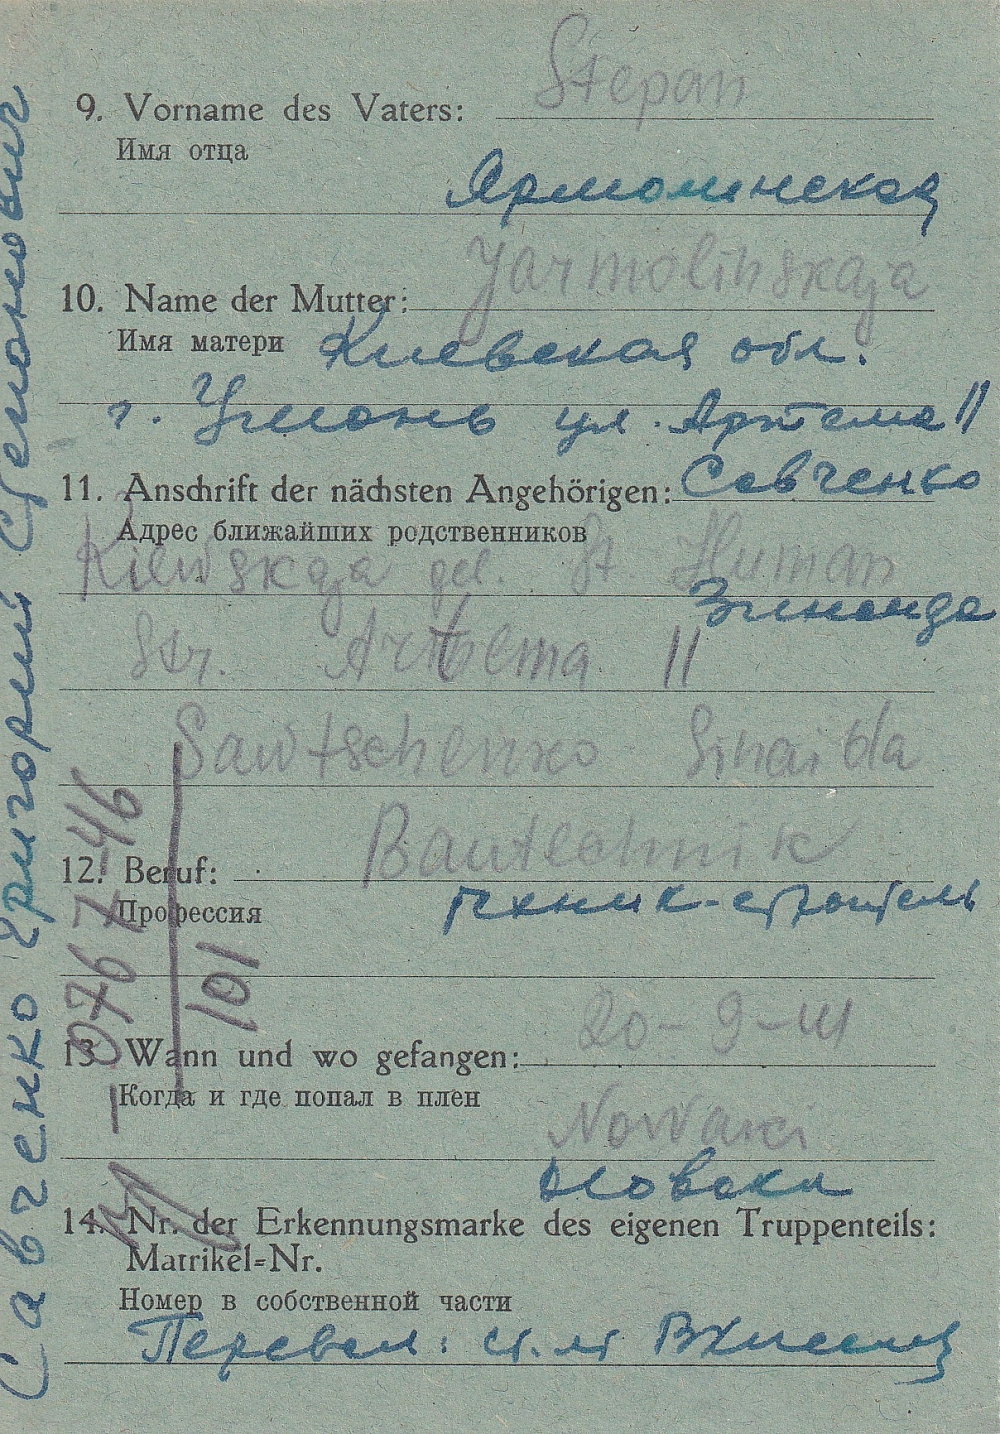 Stepan
9. Vorname des Vaters:
Имя отца
Ярмолинская
Jarmolinskaja
10. Name der Mutter:
Имя матери Киевская обл.
г. Умань ул. Артема 11
11. Anschrift der nächsten Angehörigen: Савченко
Адрес ближайших родственников
Kiewskaja gel. St Human
Зинаида
Str. Artema 11
Sawtschenko Sinaida
Bautechnik
12. Beruf:
Профессия
техник-строитель
101
20-9-41
13. Wann und wo gefangen:
Когда и где попал в плен
Nowaki
Новаки
14. Nr. der Erkennungsmarke des eigenen Truppenteils:
Matrikel=Nr.
Номер в собственной части
Перевел:
Савченко Григорий Степанович